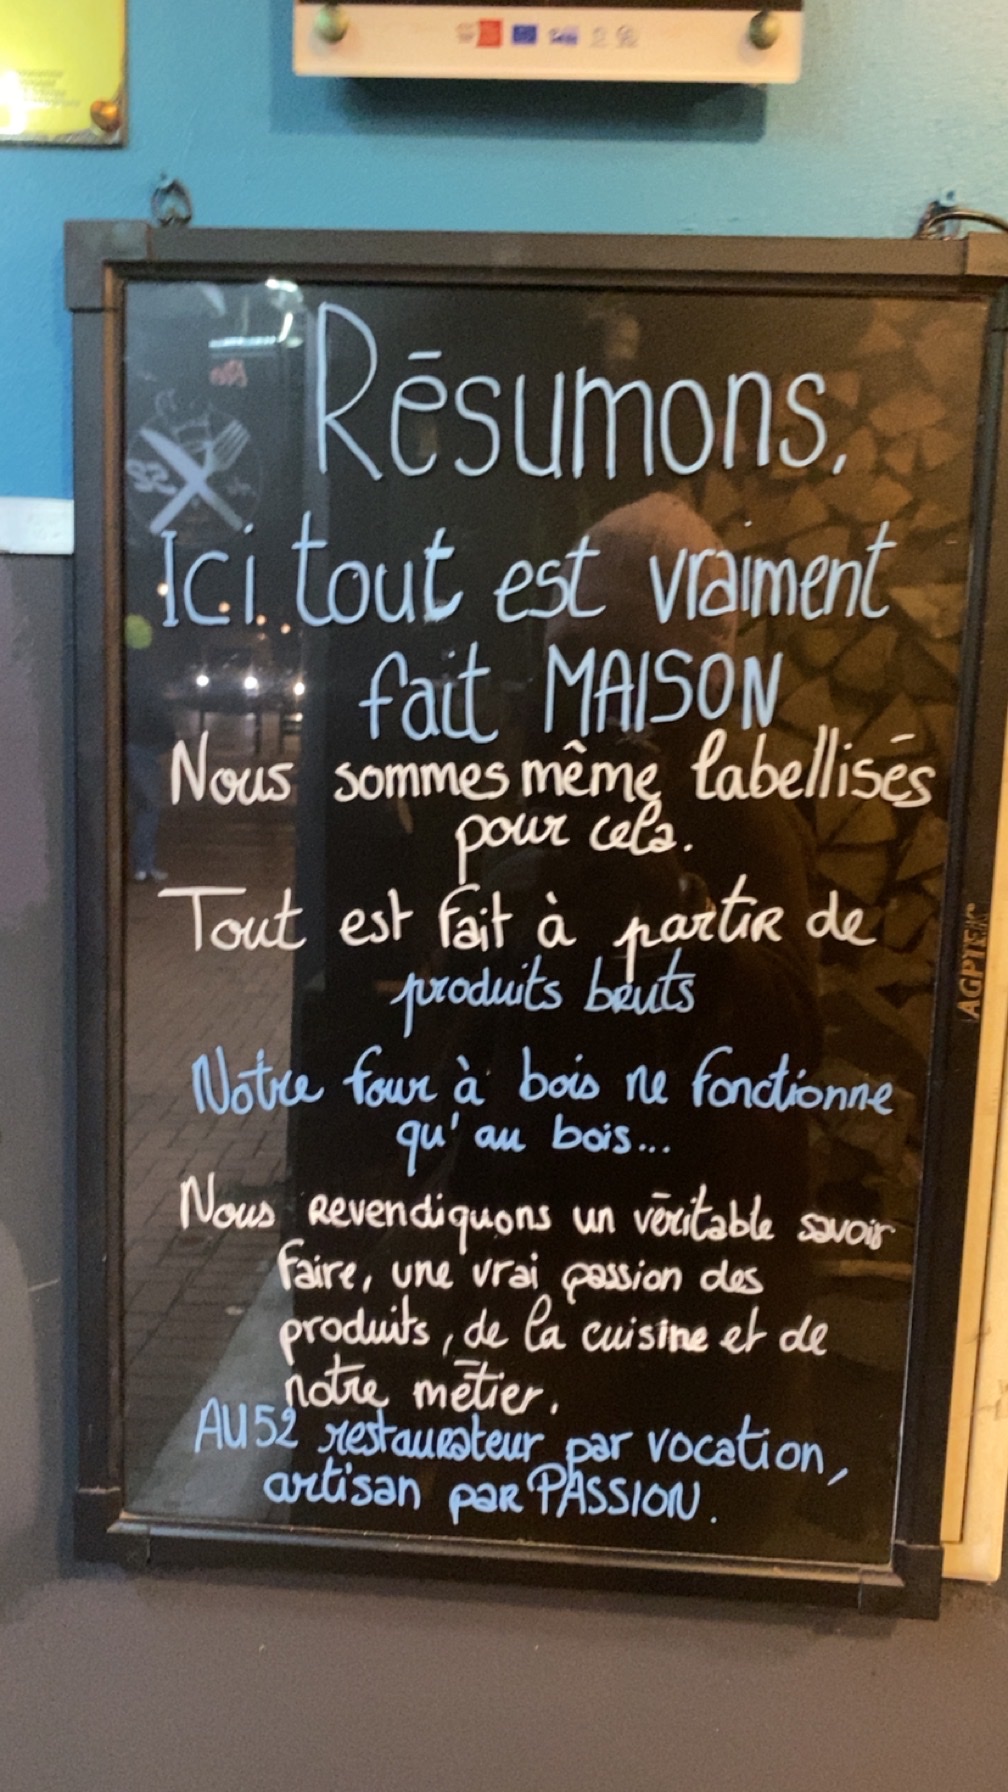 Résumons,
Ici tout est vraiment
fait MAISON
Nous sommes même labellisés
pour cela.
Tout est fait à partir de
produits bruts
Notre four à bois ne fonctionne
qu'au bois...
Nous revendiquons un véritable savoir
faire, une vrai passion des
produits, de la cuisine et de
notre métier.
AU52 restaurateur par vocation,
artisan par PASSION.
AGPTEK